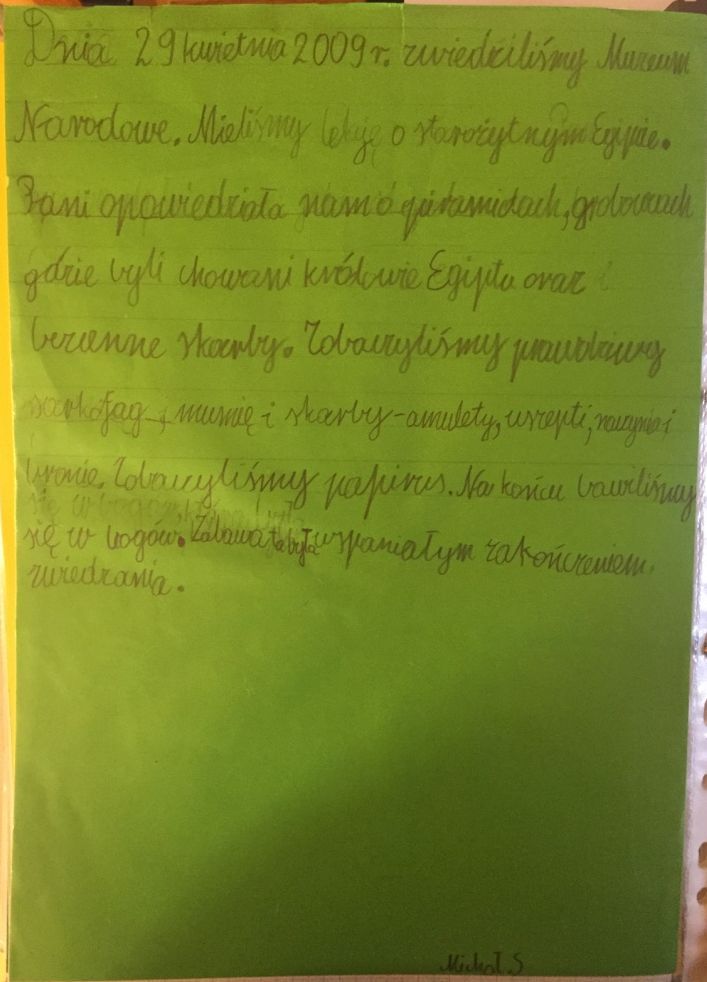 Dnia 29 kwietnia 2009 r. zwiedziliśmy Muzeum
Narodowe. Mieliśmy lekcję o starożytnym Egipie.
Pani opowiedziała nam o piramidach, grobowcach
gdzie byli chowani królowie Egiptu oraz
bezcenne skarby. Zobaczyliśmy prawdziwy
sarkofag, mumię i skarby - amulety, naczynia i
bronie. Zobaczyliśmy papirus. Na końcu bawiliśmy
się w bogów. Zabawa ta była wspaniałym zakończeniem
zwiedzania.
Michał.S